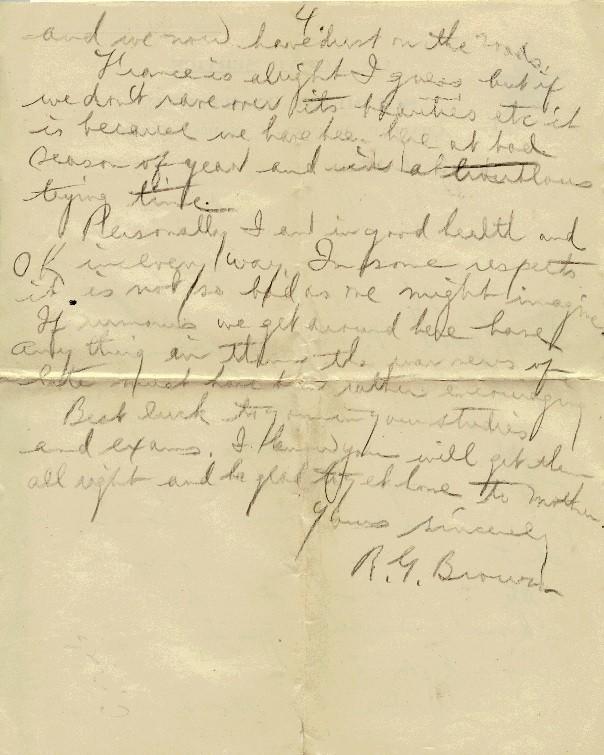 4
and we now have dust on the roads.
France is alright I guess but if
we don't rave over its beauties etc it
is because we have been here at bad
season of year and at
trying time.
Personally I am in good health and
OK in every way. In some respects
it is not so bad as we might imagine.
If rumours we get around here have
anything in them the war news of
late must have been rather encouraging.
Best luck to you in your studies
and exams. I know you will get them
all right and be glad to get home to Mother.
Yours sincerely
R. G. Brown